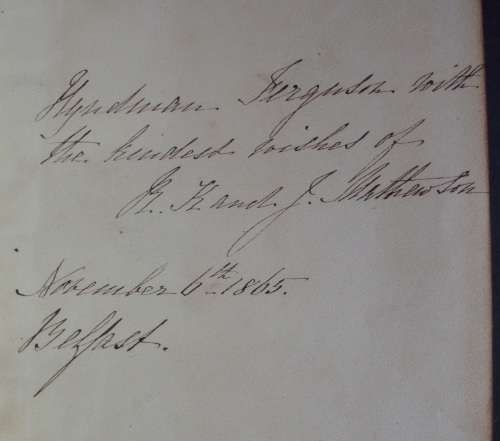 Hyndman Ferguson with
the kindest wishes of
K. and J. Mathewson
November 6th 1865.
Belfast.